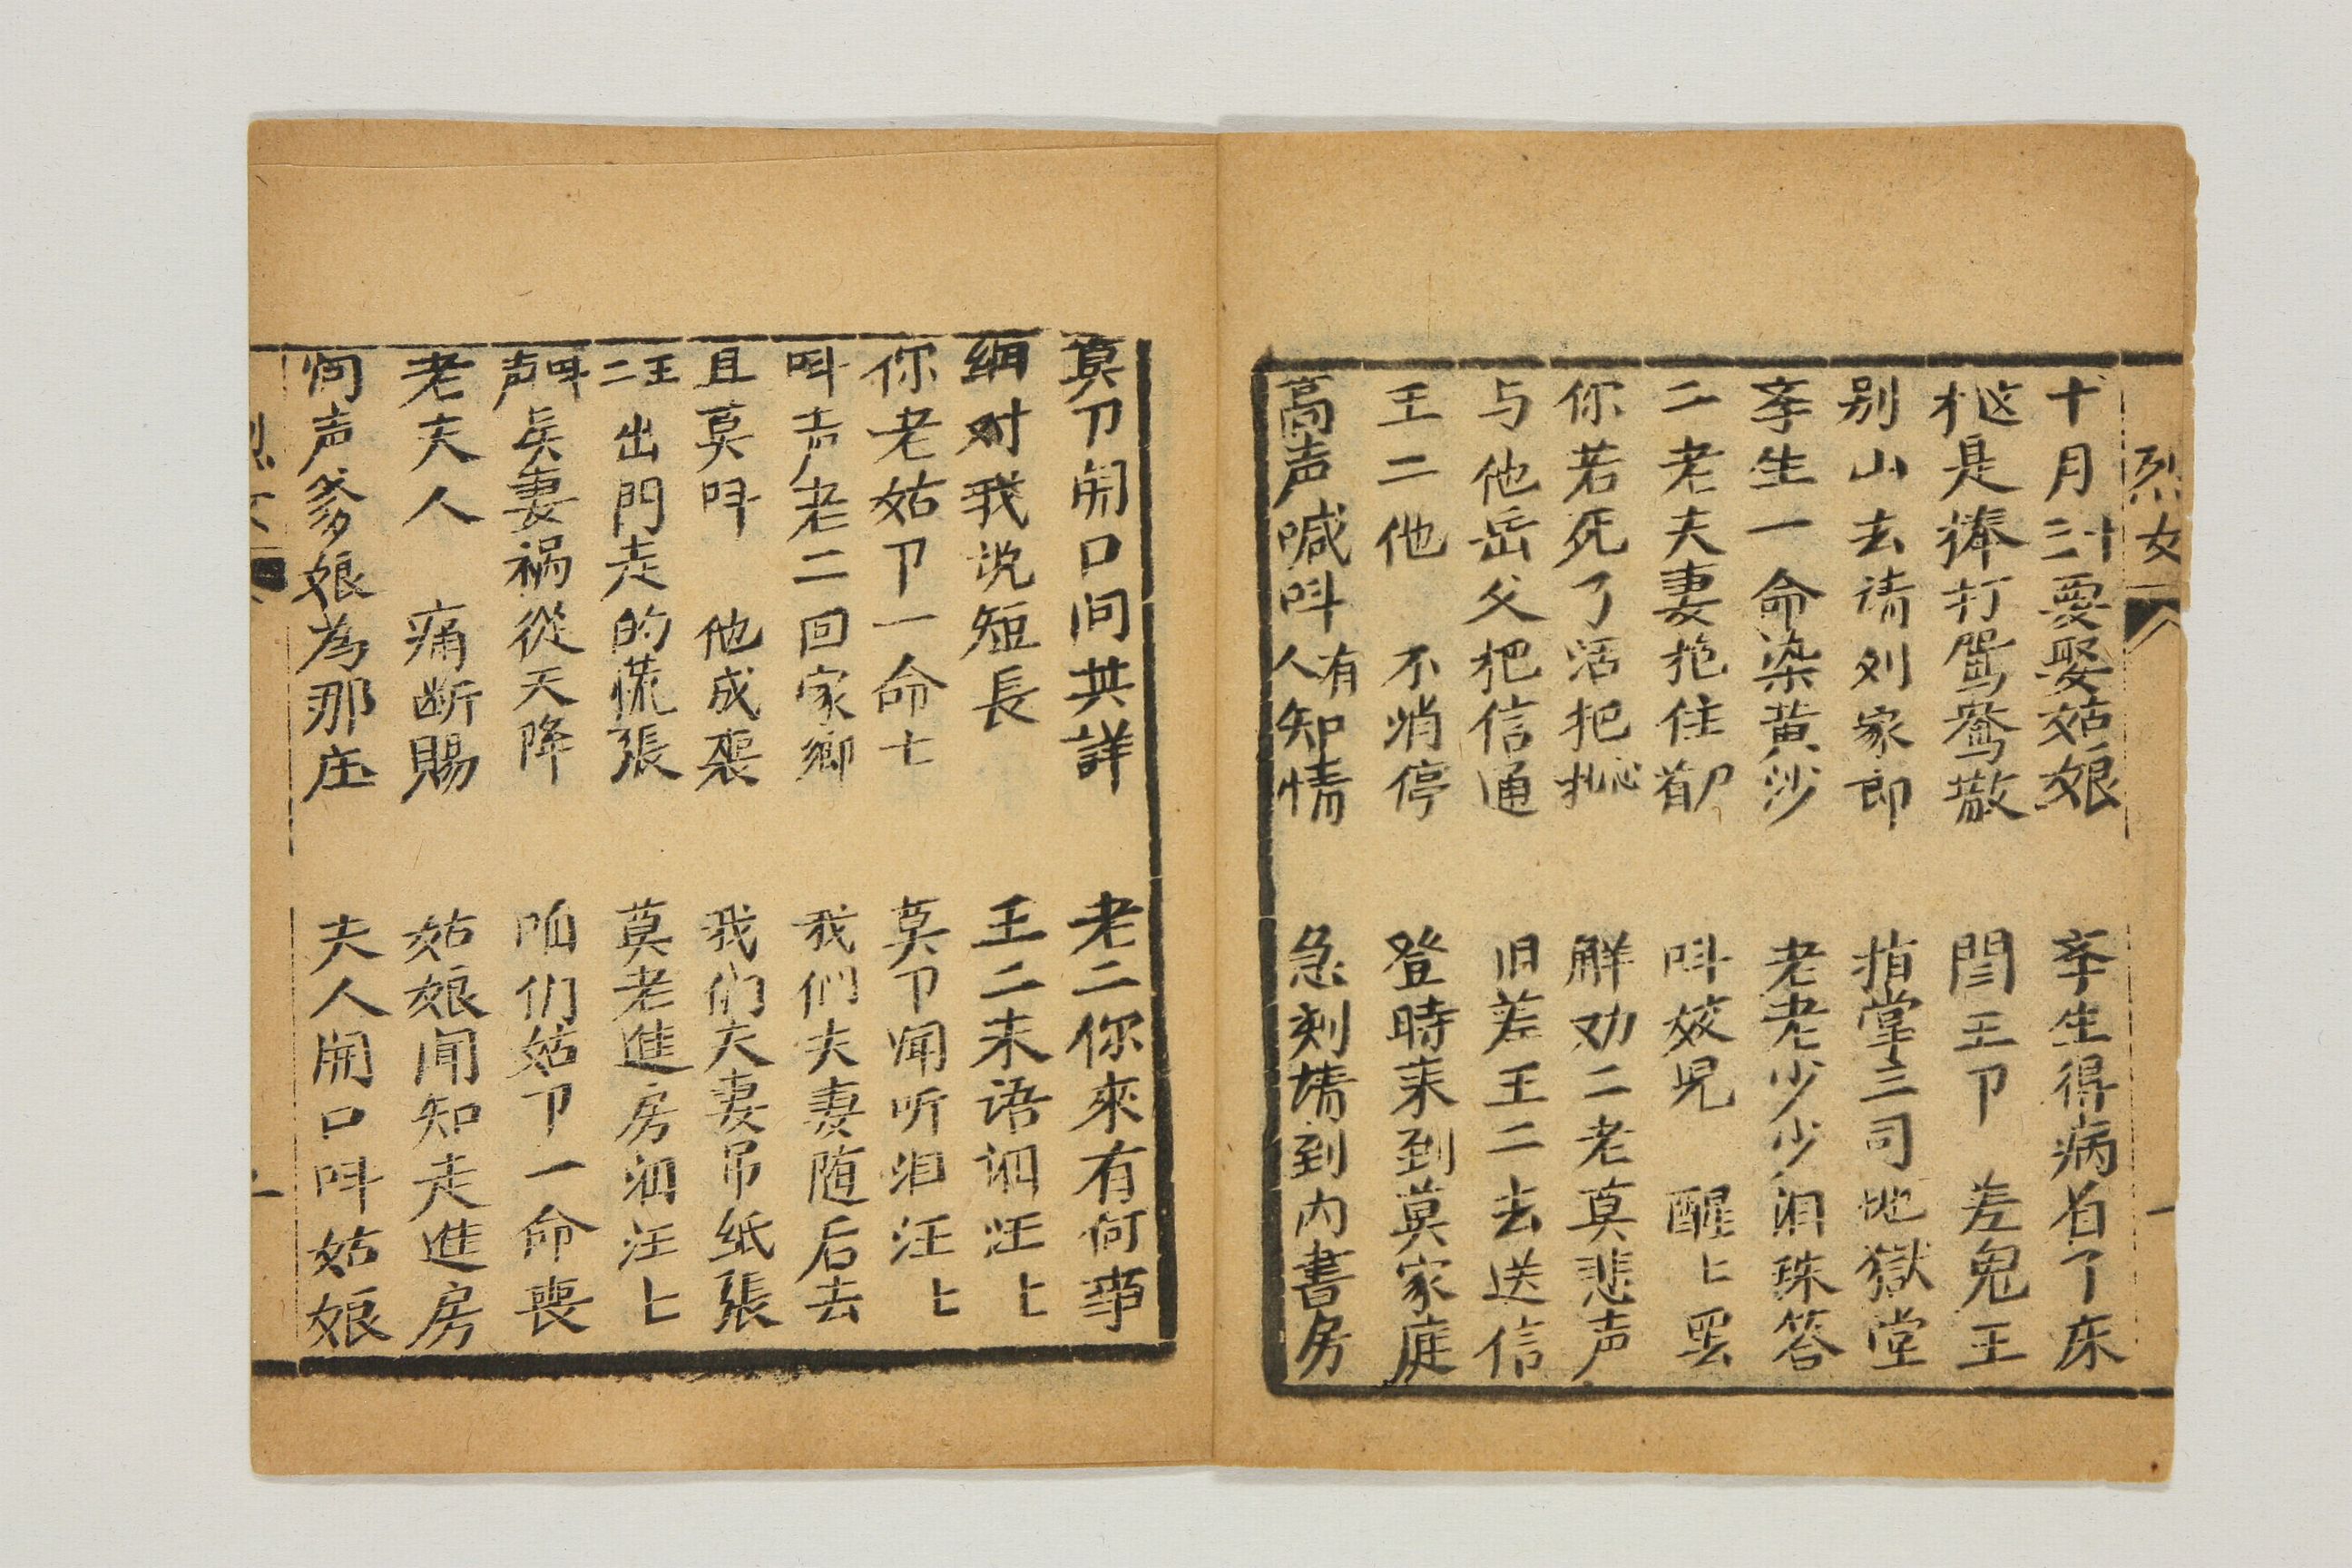 烈女
一
十月二十要娶姑娘　李生得病着了床
是捧打鴛鴦散　閆王卩　差鬼王
别山去请刘家郎　指掌三司地獄堂
李生一命染黄沙　老老少少泪珠答
二老夫妻抱住　呌姣児　醒上罢
你若死了活把　解劝二老莫悲声
与他岳父把信通　旧差王二去送信
王二他　不消停　登時来到莫家庭
高声喊呌有人知情　急刻请到内書房
莫卩開口问其詳　老二你來有何事
细对我说短長　王二未语泪汪上
你老姑卩一命亡　莫卩闻听泪汪上
呌声老二回家鄉　我们夫妻随后去
且莫呌　他成裝　我们夫妻吊纸張
王二出門走的慌張　莫老進房泪汪上
呌声吴妻祸從天降　咱们姑卩一命喪
老夫人　痛断賜　姑娘闻知走進房
问声爹娘為那庄　夫人開口呌姑娘